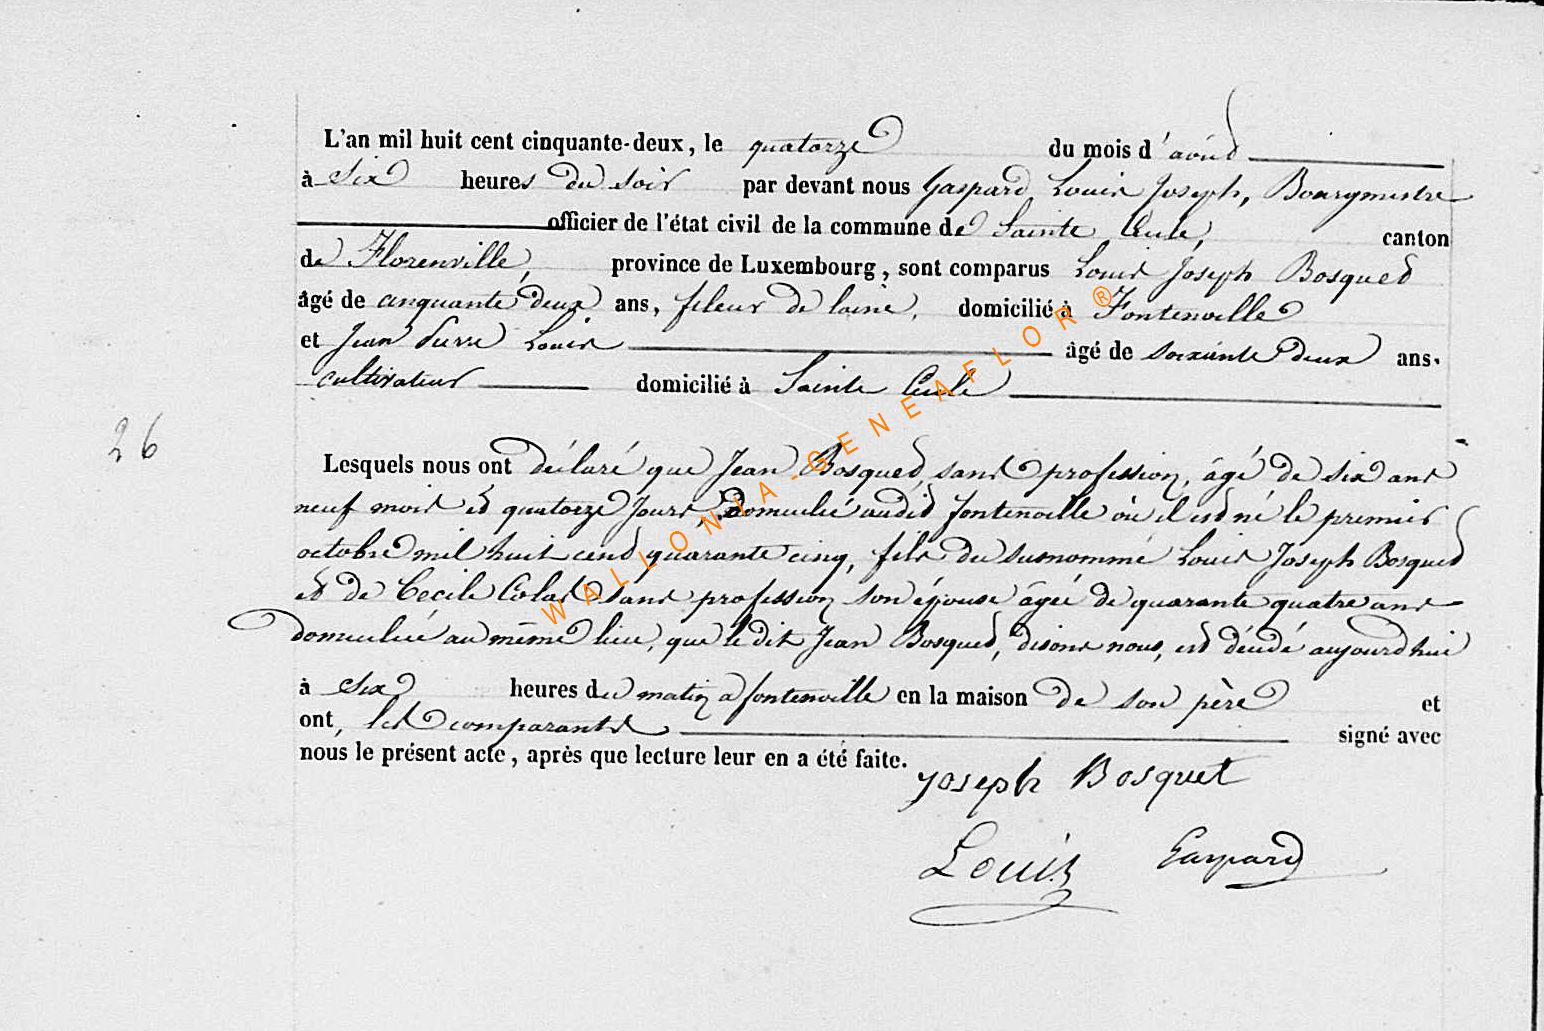 L'an mil huit cent cinquante-deux, le quatorze du mois d'août
à Six heures du soir par devant nous Gaspard Louis Joseph, Bourgmestre
officier de l'état civil de la commune de Sainte Cécile, canton
de Florenville, province de Luxembourg, sont comparus Louis Joseph Bosquet
âgé de cinquante deux ans, fileur de laine, domicilié à Fontenoille
et Jean Pierre Louis âgé de soixante deux ans.
cultivateur domicilié à Sainte Cécile
26
Lesquels nous ont déclaré que Jean Bosquet, sans profession, âgé de six ans
neuf mois et quatorze Jours, Domicilié audit fontenoille où il est né le premier
octobre mil huit cent quarante cinq, fils du susnommé Louis Joseph Bosquet
et de Cecile Colas sans profession son épouse âgée de quarante quatre ans
domiciliée au même lieu, que le dit Jean Bosquet, disons nous, est décédé aujourd'hui
à Six heures du matin a fontenoille en la maison de son père et
ont, les comparants signé avec
nous le présent acte, après que lecture leur en a été faite.
Joseph Bosquet
Louis Gaspard
WALLONIA-GENEAFLOR®